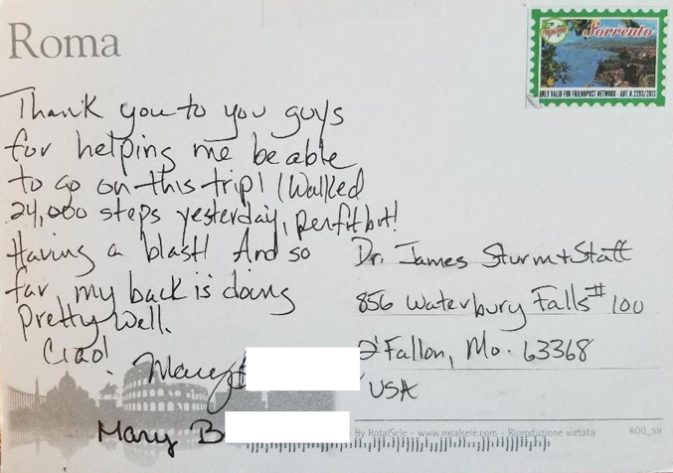 Roma
Sorrento
ONLY VALID FOR FRIENDPOST NETWORK - AUT. N 2293/2013
Thank you to you guys
for helping me be able
to go on this trip! I walked
24,000 steps yesterday, per fitbit!
Having a blast! And so
far, my back is doing
pretty well.
Ciao!
Mary
Mary B
Dr. James Sturm + Staff
856 Waterbury Falls #100
O'Fallon, Mo. 63368
USA
By RotalSele - www.rotalsele.com - Riproduzione vietata
ROG_59